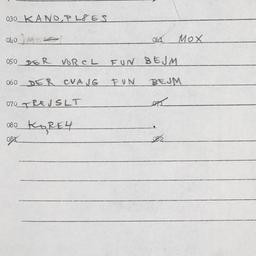 030 KANO,PLPES
040 041 MOX
050 DER VORCL FUN BEJM
060 DER CVAJG FUN BEJM
070 TREJSLT 071
080